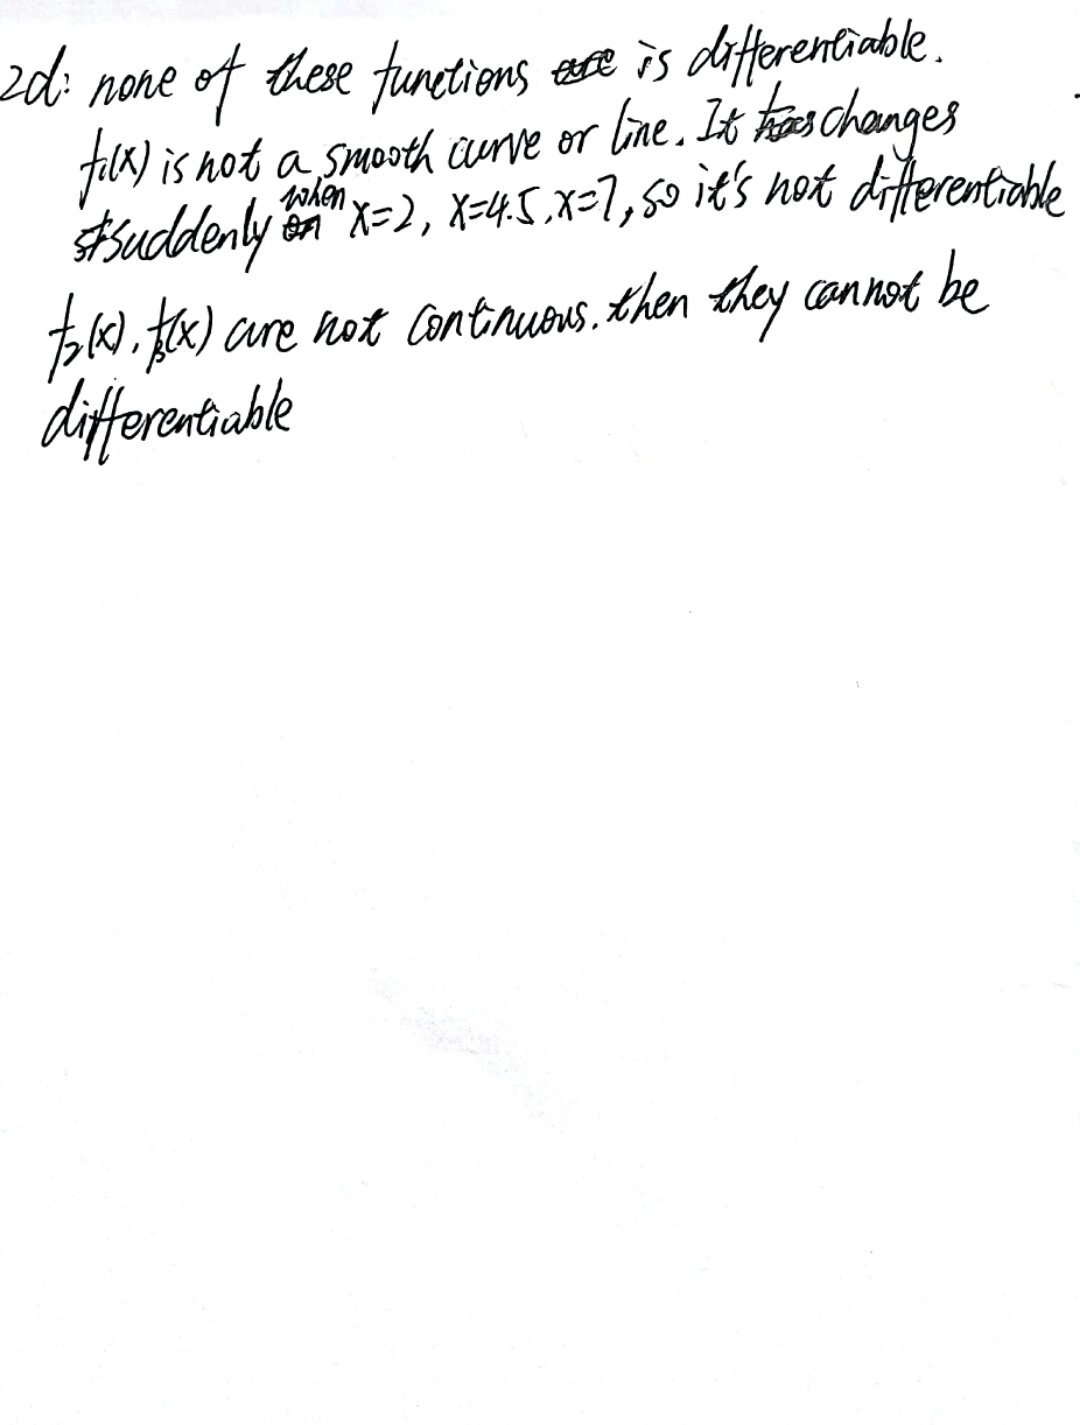 2d: none of these functions is differentiable.
f₁(x) is not a smooth curve or line. It changes
suddenly when x=2, x=4.5, x=7, so it's not differentiable
f₂(x), f₃(x) are not continuous. then they cannot be
differentiable